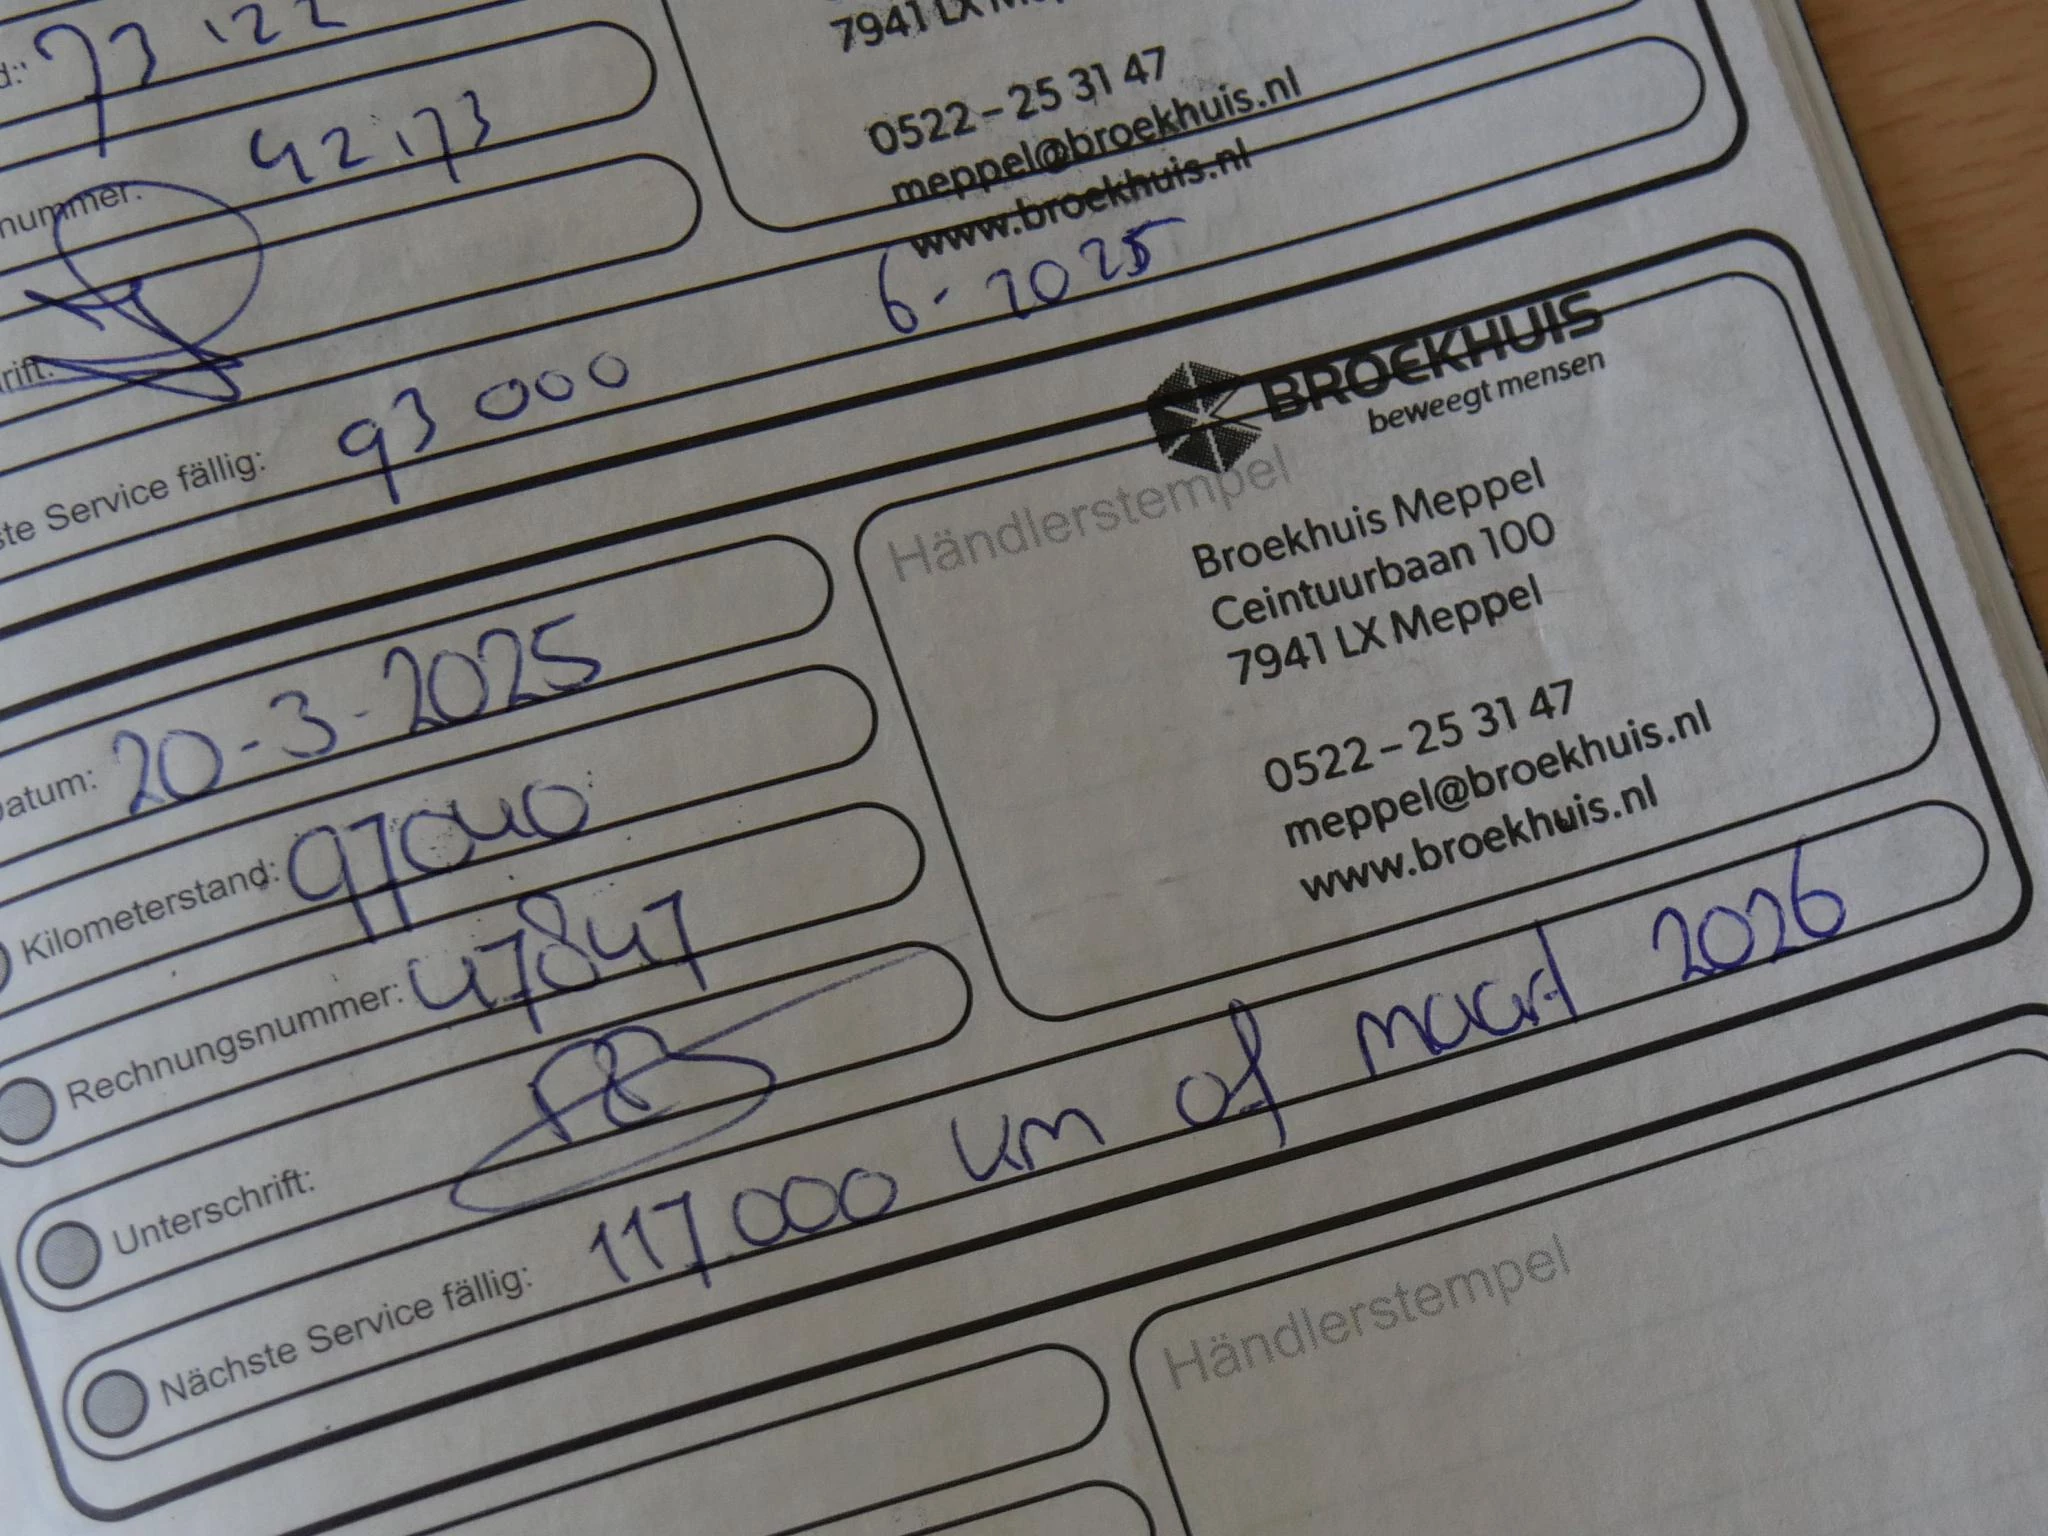 73122
7941 LX Me
0522 – 25 31 47
meppel@broekhuis.nl
www.broekhuis.nl
nummer: 42173
rift:
ste Service fällig: 93 000 6-2025
BROEKHUIS
beweegt mensen
Händlerstempel
Broekhuis Meppel
Ceintuurbaan 100
7941 LX Meppel
0522 – 25 31 47
meppel@broekhuis.nl
www.broekhuis.nl
Datum: 20-3-2025
Kilometerstand: 97040
Rechnungsnummer: 47847
Unterschrift:
Nächste Service fällig: 117.000 km of maart 2026
Händlerstempel